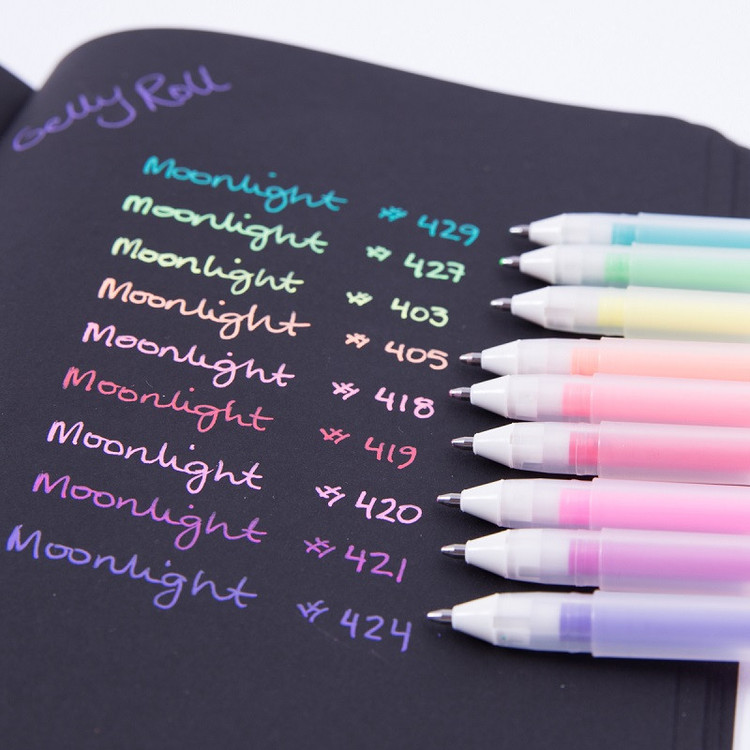 Gelly Roll
Moonlight # 429
Moonlight # 427
Moonlight # 403
Moonlight # 405
Moonlight # 418
Moonlight # 419
Moonlight # 420
Moonlight # 421
Moonlight # 424